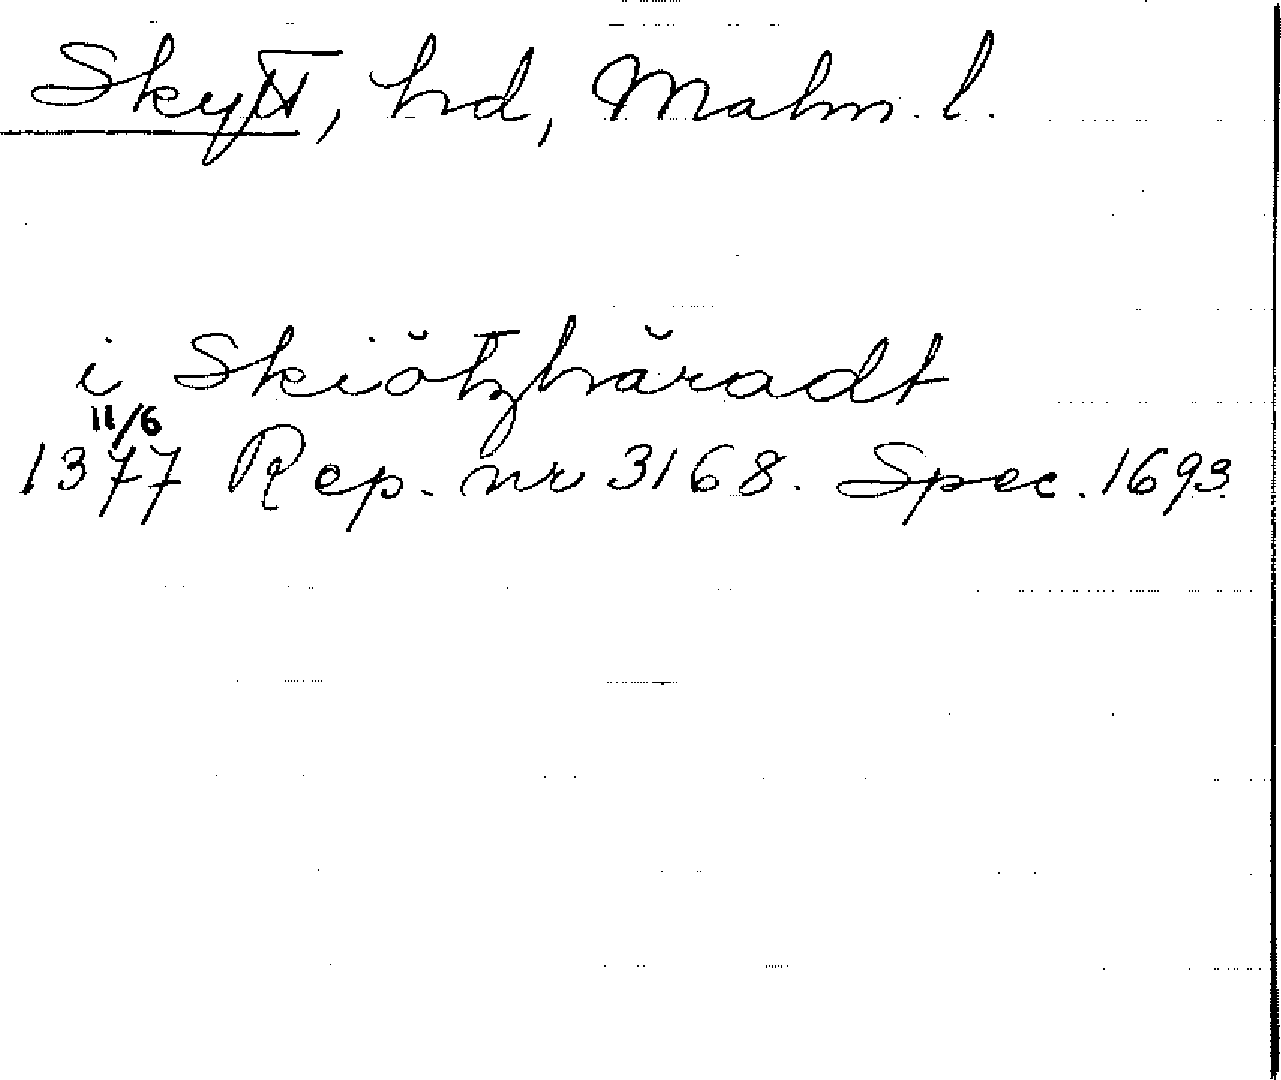 Skytt, hd, Malm. l.
i Skiötzhäradt
11/6
1377 Rep. nr 3168. Spec. 1693